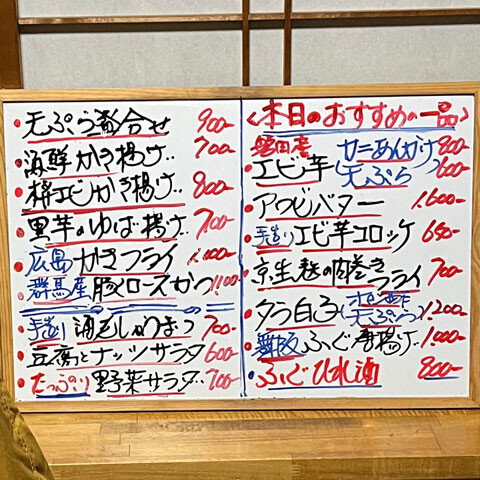 天ぷら盛合せ 900-
海鮮かき揚げ 700-
桜エビかき揚げ 800-
里芋のゆば揚げ 700-
広島かきフライ 1,000-
群馬産豚ロースかつ 1100-
手造り 海老しゅうまい 700-
豆腐とナッツサラダ 600-
たっぷり野菜サラダ 700-
〈本日のおすすめの一品〉
磐田産エビ芋 カニあんかけ 800-
天ぷら 600-
アワビバター 1,600-
手造りエビ芋コロッケ 650-
京生麩の肉巻きフライ 700-
タラ白子 天ぷら 1,200-
舞阪ふぐ唐揚げ 1,000-
ふぐひれ酒 800-